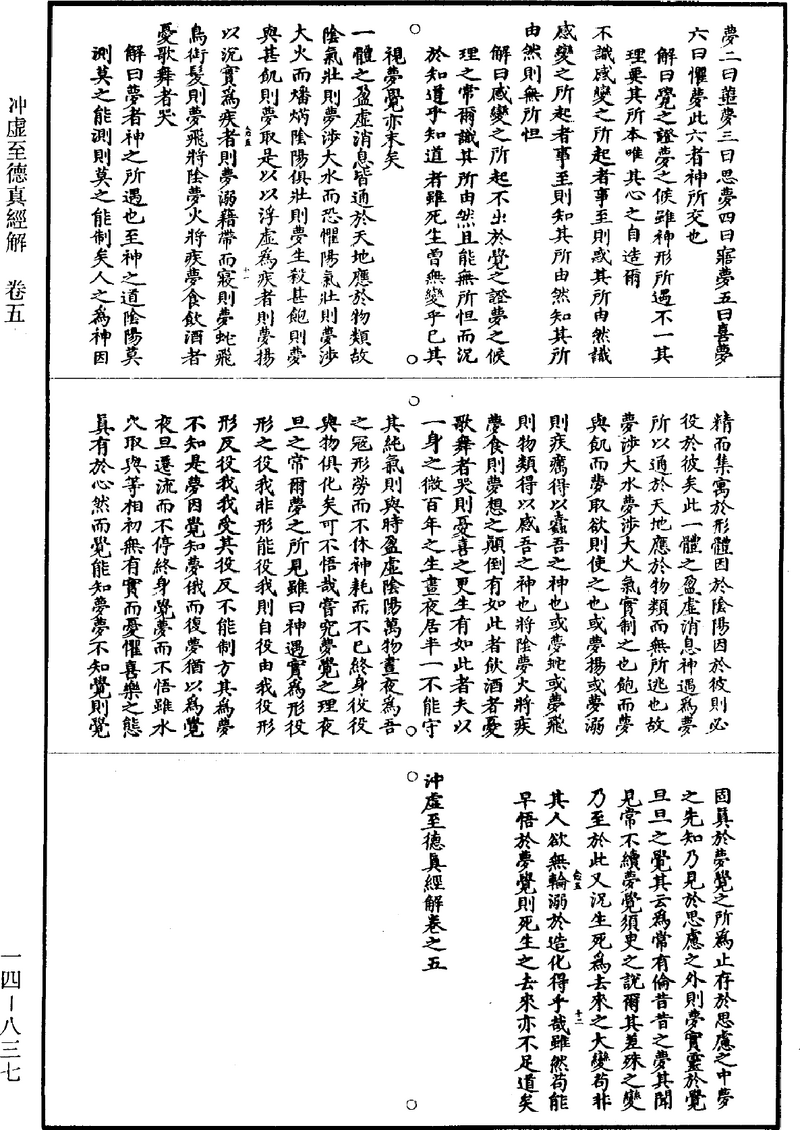 夢二曰蘁夢三曰思夢四曰寤夢五曰喜夢
六曰懼夢此六者神所交也
解曰覺之證夢之候雖神形所遇不一其
理要其所本唯其心之自造爾
不識感變之所起者事至則惑其所由然識
感變之所起者事至則知其所由然知其所
由然則無所怛
解曰感變之所起不出於覺之證夢之候
理之常爾識其所由然且能無所怛而況
於知道乎知道者雖死生曾無變乎已其
視夢覺亦末矣
一體之盈虛消息皆通於天地應於物類故
陰氣壯則夢涉大水而恐懼陽氣壯則夢涉
大火而燔焫陰陽俱壯則夢生殺甚飽則夢
與甚飢則夢取是以以浮虛為疾者則夢揚
以沉實為疾者則夢溺藉帶而寢則夢蛇飛
鳥銜髮則夢飛將陰夢火將疾夢食飲酒者
憂歌舞者哭
解曰夢者神之所遇也至神之道陰陽莫
測莫之能測則莫之能制矣人之為神因
精而集寓於形體因於陰陽因於彼則必
役於彼矣此一體之盈虛消息神遇為夢
所以通於天地應於物類而無所逃也故
夢涉大水夢涉大火氣實制之也飽而夢
與飢而夢取欲則使之也或夢揚或夢溺
則疾癘得以蠧吾之神也或夢蛇或夢飛
則物類得以感吾之神也將陰夢火將疾
夢食則夢想之顛倒有如此者飲酒者憂
歌舞者哭則憂喜之更生有如此者夫以
一身之微百年之生晝夜居半一不能守
其純氣則與時盈虛陰陽萬物晝夜為吾
之冦形勞而不休神耗而不已終身役役
與物俱化矣可不悟哉嘗究夢覺之理夜
旦之常爾夢之所見雖曰神遇實為形役
形之役我非形能役我則自役由我役形
形反役我我受其役反不能制方其為夢
不知是夢因覺知夢俄而復夢猶以為覺
夜旦遷流而不停終身覺夢而不悟雖水
穴取與等相初無有實而憂懼喜樂之態
眞有於心然而覺能知夢夢不知覺則覺
固眞於夢覺之所為止存於思慮之中夢
之先知乃見於思慮之外則夢實靈於覺
旦旦之覺其云為常有倫昔昔之夢其聞
見常不續夢覺須臾之說爾其差殊之變
乃至於此又況生死為去來之大變苟非
其人欲無輪溺於造化得乎哉雖然苟能
早悟於夢覺則死生之去來亦不足道矣
沖虛至德眞經解卷之五
冲虛至德真經解　卷五
一四－八三七